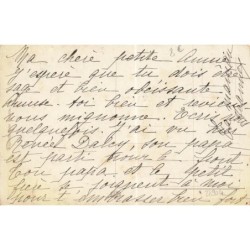 Ma chère petite Anna
J'espère que tu dois être
sage et bien obéissante
amuse toi bien et reviens
nous mignonne. Ecris
quelquefois j'ai vu hier
Daley son papa
est parti pour le front
Ton papa et le petit
se joignent à moi
pour t'embrasser bien fort